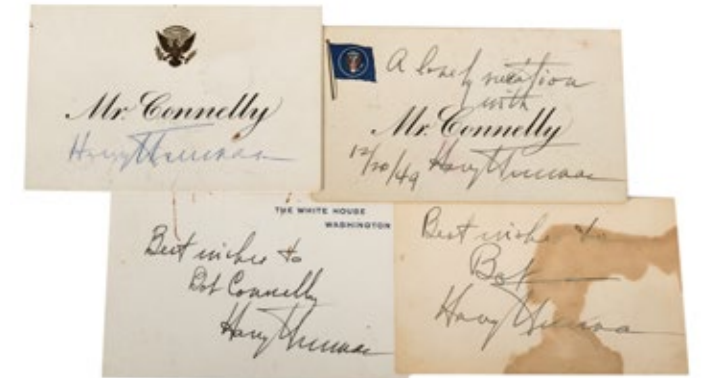 Mr. Connelly
Harry Truman
A lovely vacation
with
Mr. Connelly
12/20/49 Harry Truman
THE WHITE HOUSE
WASHINGTON
Best wishes to
Dot Connelly
Harry Truman
Best wishes to
Harry Truman